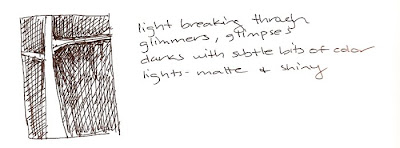 light breaking through
glimmers, glimpses
darks with subtle bits of color
lights - matte & shiny